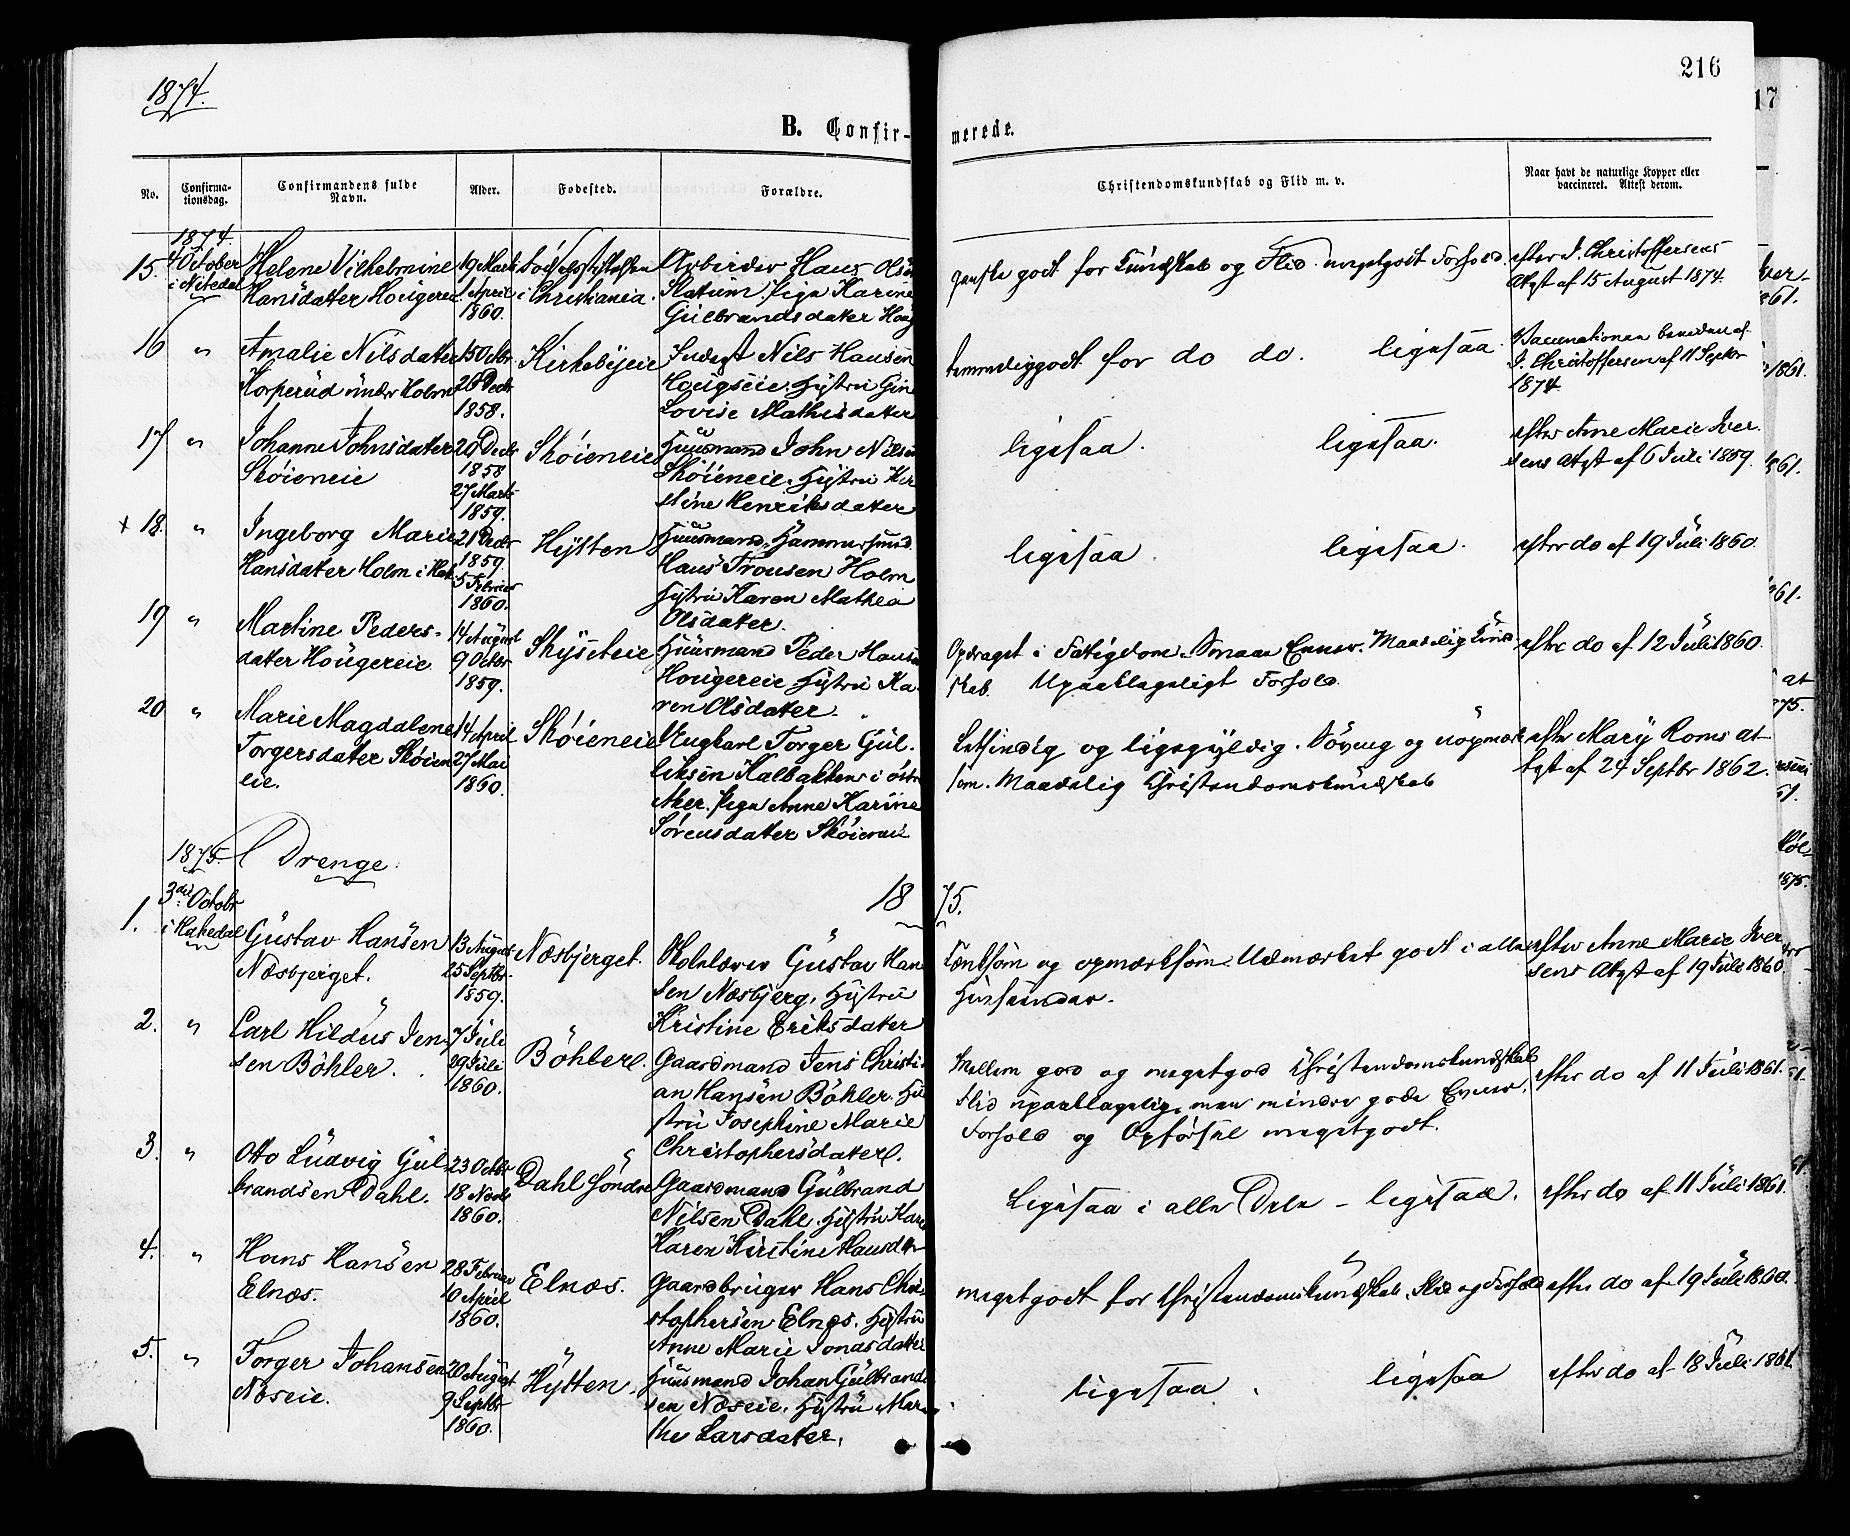 1874.
216
B. Confir-
merede.
No.
Confirma-
tionsdag.
Confirmandens fulde
Navn.
Alder.
Fødested.
Forældre.
Christendomskundskab og Flid m. v.
Naar havt de naturlige Kopper eller
vaccineret. Attest derom.
1874.
15. 4 October
i Nitedal
Helene Vilhelmine
Hansdater Hougereie
19 Marts
1 April
1860.
Fødselsstiftelsen
i Christiania.
Arbeider Hans Olsen
Slatum. Pige Karine
Gulbrandsdater Houg
ganske godt for Kundskab og Flid. megetgodt Forhold.
efter J. Christoffersens
Attst af 15 August 1874.
16 "
Amalie Nilsdater
Korperud under Holm
15 Octbr
26 Decbr
1858.
Kirkebyeie
Inderst Nils Hansen
Hougseie. Hustru Gin
Lovise Mathisdater
temmeliggodt for do do. ligesaa.
Vaccinationen bevidnet af
J. Christoffersen af 11 Septbr
1874.
17 "
Johanne Johnsdater
Skøieneie
20 Decbr
1858
27 Marts
1859.
Skøieneie
Huusmand John Nilsen
Skøieneie. Hustru Kir
stine Henriksdater
ligesaa. ligesaa.
efter Anne Marie Iver
sens Attst af 6 Juli 1859.
+ 18. "
Ingeborg Marie
Hansdater Holm i Hak
21 Decbr
1859.
5 Februar
1860.
Hytten
Huusmand, Hammersmed
Hans Tronsen Holm
Hustru Karen Mathea
Olsdater.
ligesaa. ligesaa.
efter do af 19 Juli 1860.
19 "
Martine Peders-
dater Hougereie
14 August
9 Octbr
1859.
Skyseteie
Huusmand Peder Hansen
Hougereie Hustru Ka-
ren Olsdater.
Opdraget i Fatigdom. Smaae Evner. Maadelig Kund-
skab. Upaaklageligt Forhold.
efter do af 12 Juli 1860.
20 "
Marie Magdalene
Torgersdater Skøien
eie.
14 April
27 Mai
1860.
Skøieneie
Ungkarl Torger Gul-
liksen Kalbakken i østre
Aker. Pige Anne Karine
Sørensdater Skøieneie
Letsindig og ligegyldig. Døvneg og uopmærk
som. Maadelig Christendomskundskab
efter Mary Roms at
test af 24 Septbr 1862.
1875. Drenge.
18 75.
1. 3die Octobr
i Hakedal
Gustav Hansen
Næsbjerget.
13 August
25 Septbr.
1859.
Næsbjerget.
Skolelærer Gustav Han
sen Næsbjerg, Hustru
Kristine Eriksdater
Tænksom og opmærksom. Udmærket godt i alle
Hinseender.
efter Anne Marie Iver
sens Attst af 19 Juli 1860.
2. "
Carl Hildus Jen-
sen Bøhler.
7 Juli
29 Juli
1860.
Bøhler.
Gaardmand Jens Christi-
an Hansen Bøhler. Hu
stru Josephine Marie
Christophersdater.
Mellem god og megetgod Christendomskundskab
Flid upaaklagelig, men mindre gode Evner.
Forhold og Opførsel megetgodt.
efter do af 11 Juli 1861.
3. "
Otto Ludvig Gul
brandsen Dahl.
23 Octbr
18 Novbr
1860.
Dahl søndre
Gaardmand Gulbrand
Nilsen Dahl. Hustru Kare
Karen Kirstine Hansdtr
Ligesaa i alle Dele - ligesaa.
efter do af 11 Juli 1861.
4. "
Hans Hansen
Elnæs.
28 Februar
10 April
1860.
Elnæs.
Gaardbruger Hans Chri-
stophersen Elnæs. Hustru
Anne Marie Jonasdatter
megetgodt for Christendomskundskab, Flid og Forhold
efter do af 19 Juli 1860.
5. "
Torger Johansen
Næseie.
20 August
9 Septbr
1860.
Hytten.
Huusmand Johan Gulbrand
sen Næseie. Hustru Mar
the Larsdater.
ligesaa. ligesaa
efter do af 18 Juli 1861.